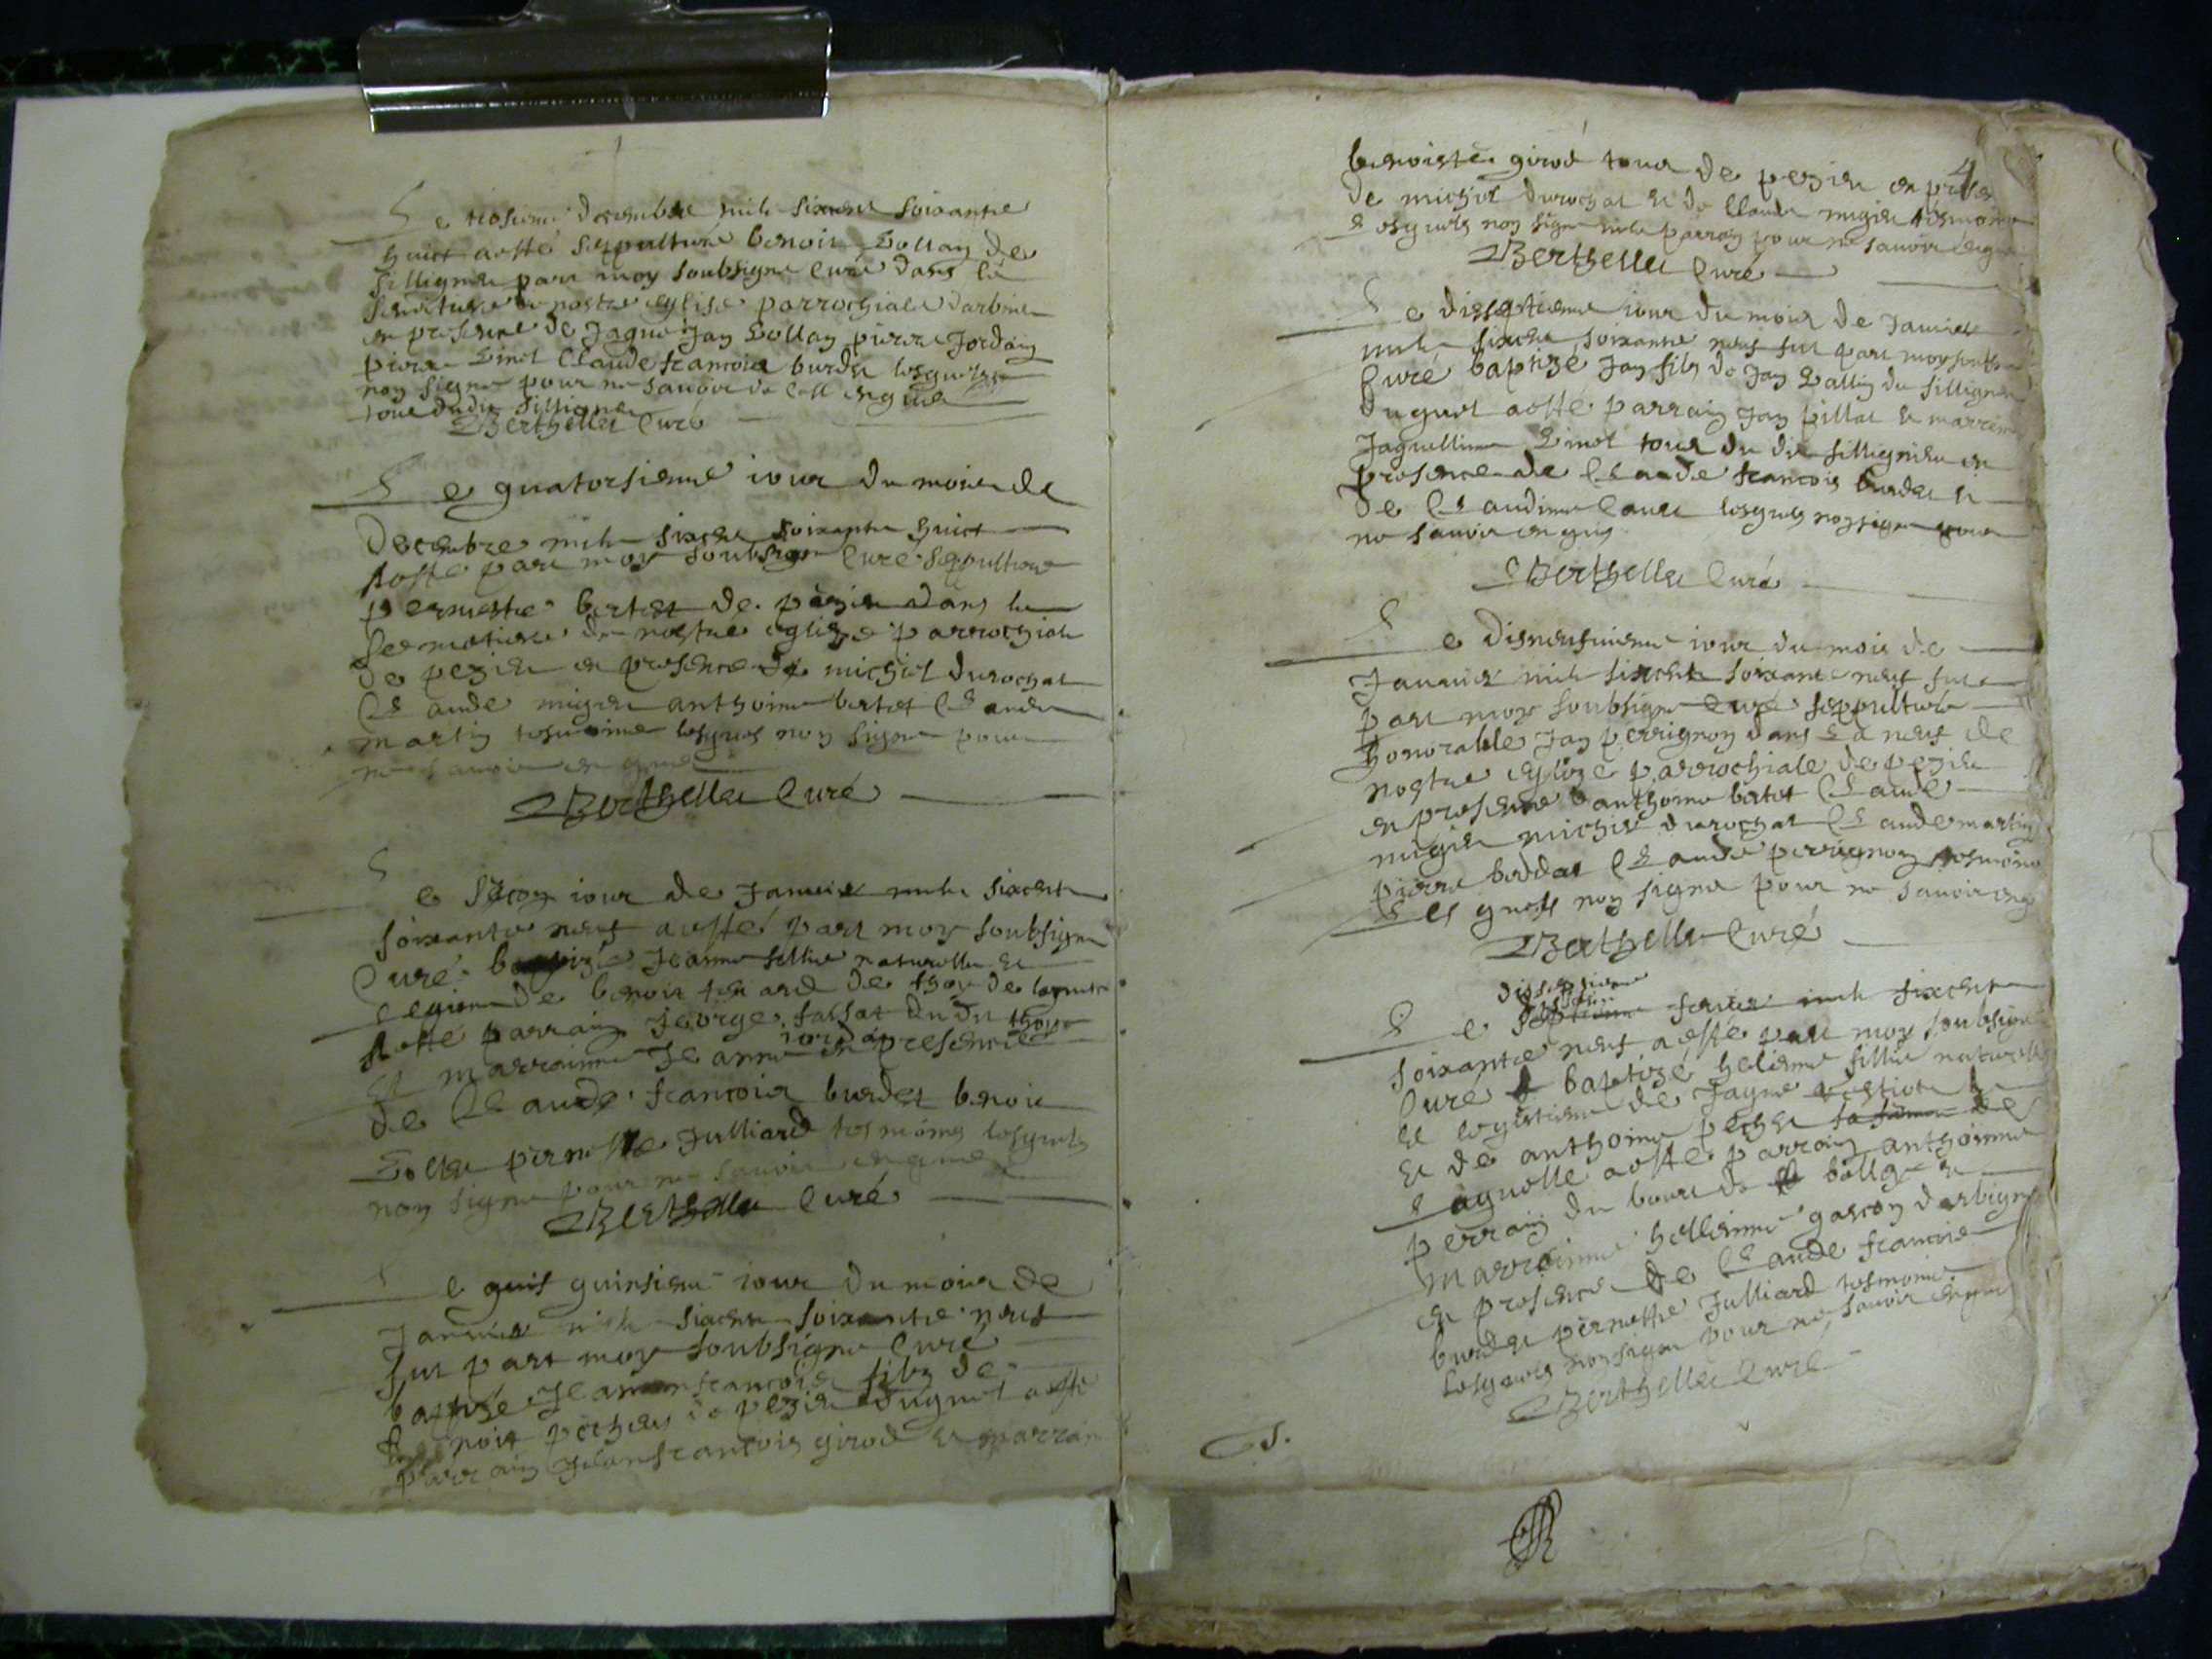 Le troisieme decembre mile sixcent soixante
huict a esté sepulturé benoit Sollay de
Silligneu par moy soubsigne Curé dans le
semeture de nostre eglise parrochiale darbine
en presence de Jaque Jay Sollay pierre Jordain
pierre Claude francois burdet lesquels
non signe pour ne savoir de ce enquis
tous dudit Silligneu
Berthellet Curé
Le quatorsieme iour du mois de
Decembre mile sixcent soixante huict
a esté par moy soubsigne Curé sepulture
pernette bertet de pezieu dans le
semetiere de nostre eglize parrochiale
de pezieu en presence de michel durochat
Claude migieu anthoine bertet Claude
martin tesmoins lesquels non signe pour
ne savoir enquis
Berthellet Curé
Le Secon iour de Januier mile sixcent
soixante neuf a esté par moy soubsigne
Curé baptizé Jeanne fillie naturelle et
legitime de benoit de thoy de
a esté parrain George fassat du dit thoy
iordain
et marrainne Jeanne en presence
de Claude francois burdet benoit
Sollay pernette Julliard tesmoins lesquels
non signe pour ne savoir enquis
Berthellet Curé
Le quinsieme iour du mois de
Januier mile sixcent soixante neuf
fut par moy soubsigne Curé
baptisé Jean francois fils de
benoit pechet de pezieu duquel a esté
parrain Jean francois girod et marrain
4
benoiste girod tous de pezieu en presen
de michel durochat et de Claude migieu tesmoins
Lesquels non signe parrain pour ne savoir enquis
Berthellet Curé
Le disseptieme iour du mois de Januier
mile sixcent soixante neuf fut par moy soubsi
Curé baptizé Jay fils de Jay Ballin du silligneu
duquel a esté parrain Jay pillat et marreine
Jaquellime tous du dit silligneu en
presence de Claude francois burdet et
de Claudine lesquels non signe pour
ne savoir enquis
Berthellet Curé
Le disneufuieme iour du mois de
Januier mile sixcent soixante neuf fut
par moy soubsigne Curé sepulturé
honorable Jay perrignon dans La neuf de
nostre eglize parrochiale de pezieu
en presence danthoine bertet Claude
migieu michel durochat Claude martin
pierre boddat Claude perrignon tesmoins
Lesquels non signe pour ne savoir enq
Berthellet Curé
disseptieme
Le Septieme feurier mile sixcent
soixante neuf a esté par moy soubsigne
Curé baptizé helienne fillie naturelle
et legitime de Jaque
et de anthoine pechet sa femme de
Laquelle a esté parrain anthoinne
perrain du bourt de et
marrainne hellienne gascon darbignie
en presence de Claude francois
burdet pernette Julliard tesmoins
Lesquels non signe pour ne savoir enquis
Berthellet Curé